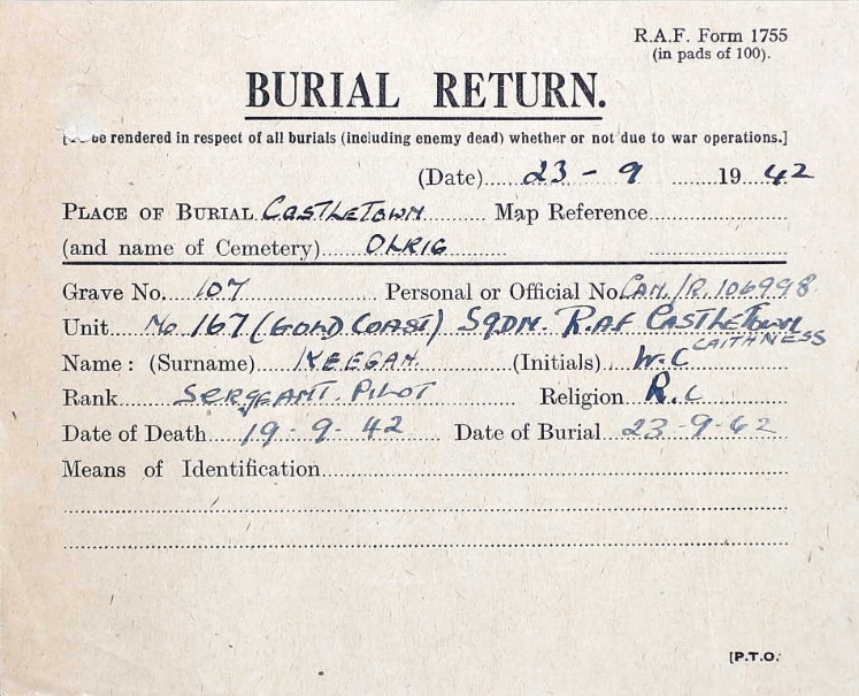 R.A.F. Form 1755
(in pads of 100).
BURIAL RETURN.
be rendered in respect of all burials (including enemy dead) whether or not due to war operations.]
(Date) 23 - 9 19 42
PLACE OF BURIAL CASTLETOWN Map Reference
(and name of Cemetery) OLRIG
Grave No. 107 Personal or Official No. CAN./R.106998
Unit No 167 (GOLD COAST) SQDN. R.AF CASTLETOWN
CAITHNESS
Name: (Surname) KEEGAN. (Initials) W.C
Rank SERGEANT. PILOT Religion R.C
Date of Death 19-9-42 Date of Burial 23-9-42
Means of Identification
[P.T.O.